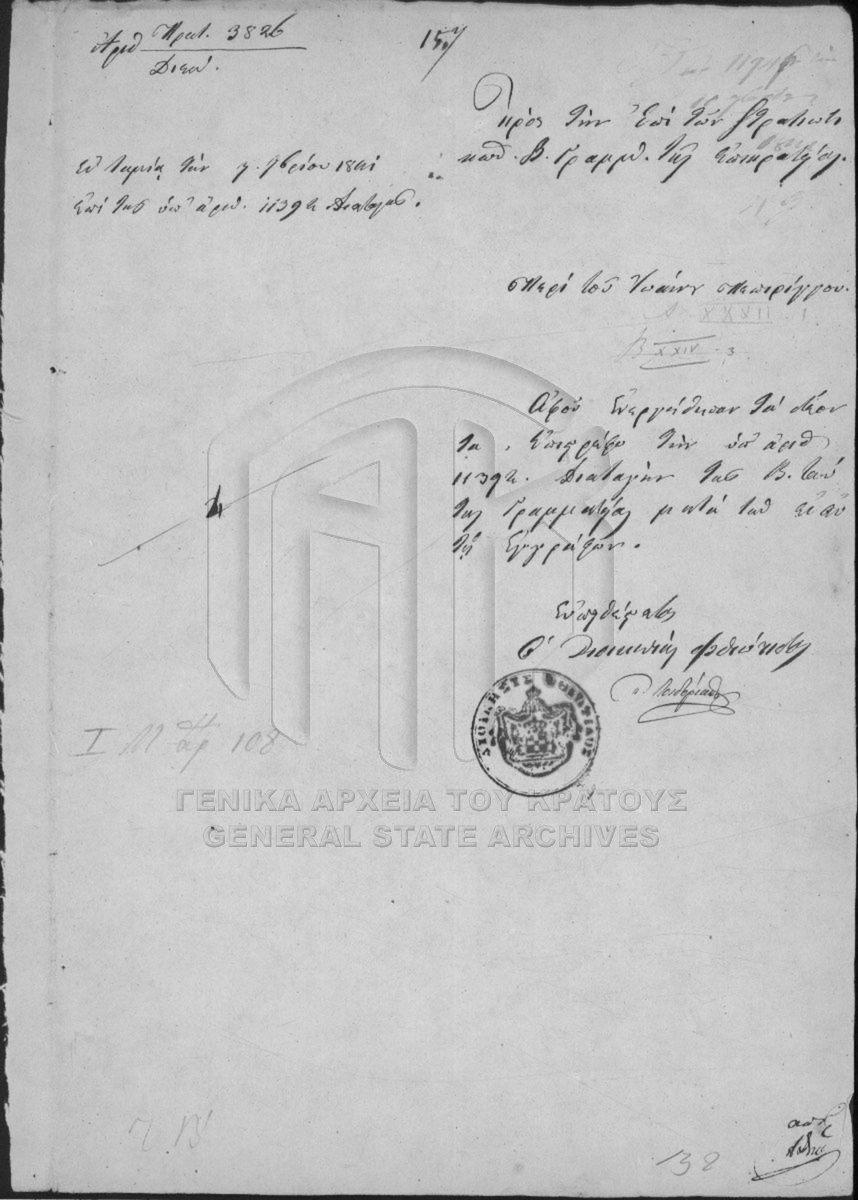 Ἀριθ Πρωτ. 3826
Διεκ.
15
Πρὸς τὴν ἐπὶ τῶν Στρατιωτι
κῶν Β. Γραμμ. τῆς Ἐπικρατείας.
Ἐν Λαμίᾳ τὴν 7 9βρίου 1841
ἐπὶ τῆς ὑπ' ἀριθ. 11392 διαταγῆς.
Περὶ τοῦ Ἰωάννου
A XXXII. 1.
B XXIV. 3
Ἀφοῦ ἐνεργήθησαν τὰ δέον
τα, ἐπιστρέφω τὴν ὑπ' ἀριθ
11392. διαταγὴν τῆς Β. ταύ
της Γραμματείας μετὰ τῶν ἐν αὐ
τῇ ἐγγράφων.
Εὐπειθέστατος
Ὁ Διοικητὴς Φθιώτιδος
ΔΙΟΙΚΗΣΙΣ ΦΘΙΩΤΙΔΟΣ
I M αρ 108
ΓΕΝΙΚΑ ΑΡΧΕΙΑ ΤΟΥ ΚΡΑΤΟΥΣ
GENERAL STATE ARCHIVES
138